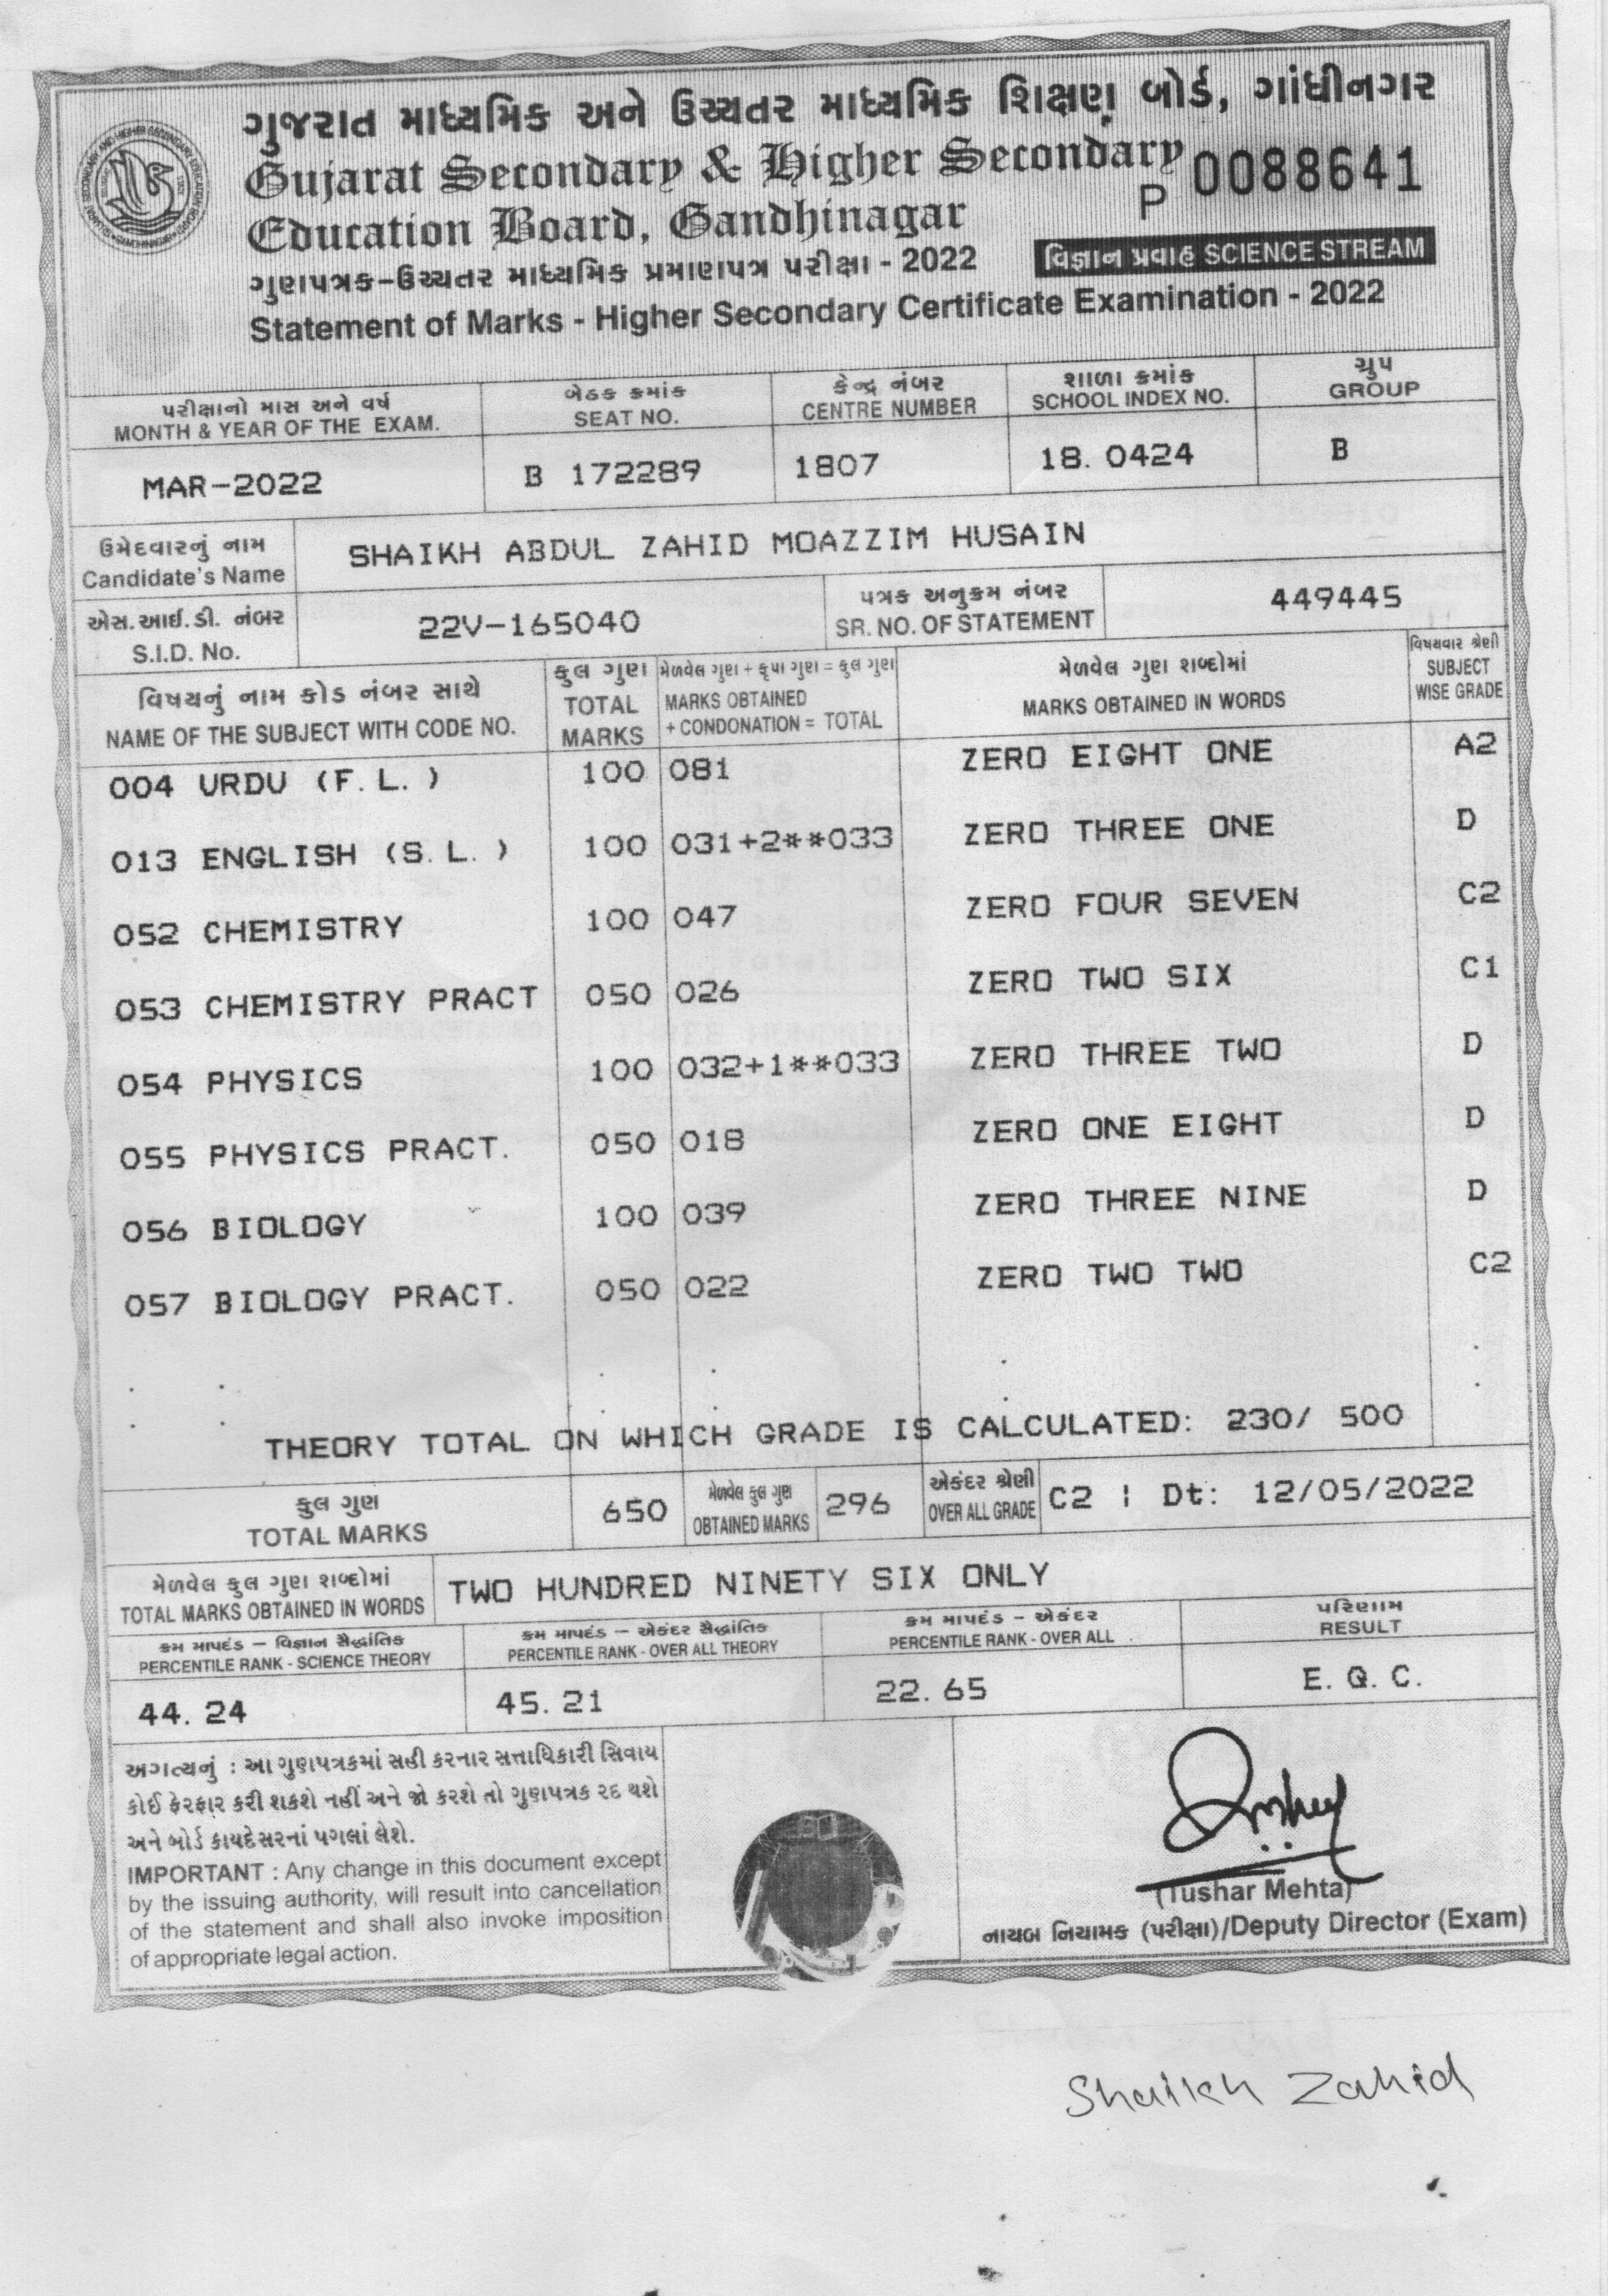 ગુજરાત માધ્યમિક અને ઉચ્ચતર માધ્યમિક શિક્ષણ બોર્ડ, ગાંધીનગર
Gujarat Secondary & Higher Secondary
Education Board, Gandhinagar
P 0088641
ગુણપત્રક-ઉચ્ચતર માધ્યમિક પ્રમાણપત્ર પરીક્ષા - 2022
વિજ્ઞાન પ્રવાહ SCIENCE STREAM
Statement of Marks - Higher Secondary Certificate Examination - 2022
પરીક્ષાનો માસ અને વર્ષ બેઠક ક્રમાંક કેન્દ્ર નંબર શાળા ક્રમાંક ગ્રુપ
MONTH & YEAR OF THE EXAM. SEAT NO. CENTRE NUMBER SCHOOL INDEX NO. GROUP
MAR-2022 B 172289 1807 18. 0424 B
ઉમેદવારનું નામ
Candidate's Name
SHAIKH ABDUL ZAHID MOAZZIM HUSAIN
એસ.આઈ.ડી. નંબર
S.I.D. No.
22V-165040
પત્રક અનુક્રમ નંબર
SR. NO. OF STATEMENT
449445
વિષયનું નામ કોડ નંબર સાથે
NAME OF THE SUBJECT WITH CODE NO.
કુલ ગુણ
TOTAL
MARKS
મેળવેલ ગુણ + કૃપા ગુણ = કુલ ગુણ
MARKS OBTAINED
+ CONDONATION = TOTAL
મેળવેલ ગુણ શબ્દોમાં
MARKS OBTAINED IN WORDS
વિષયવાર શ્રેણી
SUBJECT
WISE GRADE
004 URDU (F. L. ) 100 081 ZERO EIGHT ONE A2
013 ENGLISH (S. L. ) 100 031+2**033 ZERO THREE ONE D
052 CHEMISTRY 100 047 ZERO FOUR SEVEN C2
053 CHEMISTRY PRACT 050 026 ZERO TWO SIX C1
054 PHYSICS 100 032+1**033 ZERO THREE TWO D
055 PHYSICS PRACT. 050 018 ZERO ONE EIGHT D
056 BIOLOGY 100 039 ZERO THREE NINE D
057 BIOLOGY PRACT. 050 022 ZERO TWO TWO C2
THEORY TOTAL ON WHICH GRADE IS CALCULATED: 230/ 500
કુલ ગુણ
TOTAL MARKS
650
મેળવેલ કુલ ગુણ
OBTAINED MARKS
296
એકંદર શ્રેણી
OVER ALL GRADE
C2 | Dt: 12/05/2022
મેળવેલ કુલ ગુણ શબ્દોમાં
TOTAL MARKS OBTAINED IN WORDS
TWO HUNDRED NINETY SIX ONLY
ક્રમ માપદંડ – વિજ્ઞાન સૈદ્ધાંતિક ક્રમ માપદંડ – એકંદર સૈદ્ધાંતિક ક્રમ માપદંડ – એકંદર પરિણામ
PERCENTILE RANK - SCIENCE THEORY PERCENTILE RANK - OVER ALL THEORY PERCENTILE RANK - OVER ALL RESULT
44. 24 45. 21 22. 65 E. Q. C.
અગત્યનું : આ ગુણપત્રકમાં સહી કરનાર સત્તાધિકારી સિવાય
કોઈ ફેરફાર કરી શકશે નહીં અને જો કરશે તો ગુણપત્રક રદ થશે
અને બોર્ડ કાયદેસરનાં પગલાં લેશે.
IMPORTANT : Any change in this document except
by the issuing authority, will result into cancellation
of the statement and shall also invoke imposition
of appropriate legal action.
(Tushar Mehta)
નાયબ નિયામક (પરીક્ષા)/Deputy Director (Exam)
Shaikh Zahid